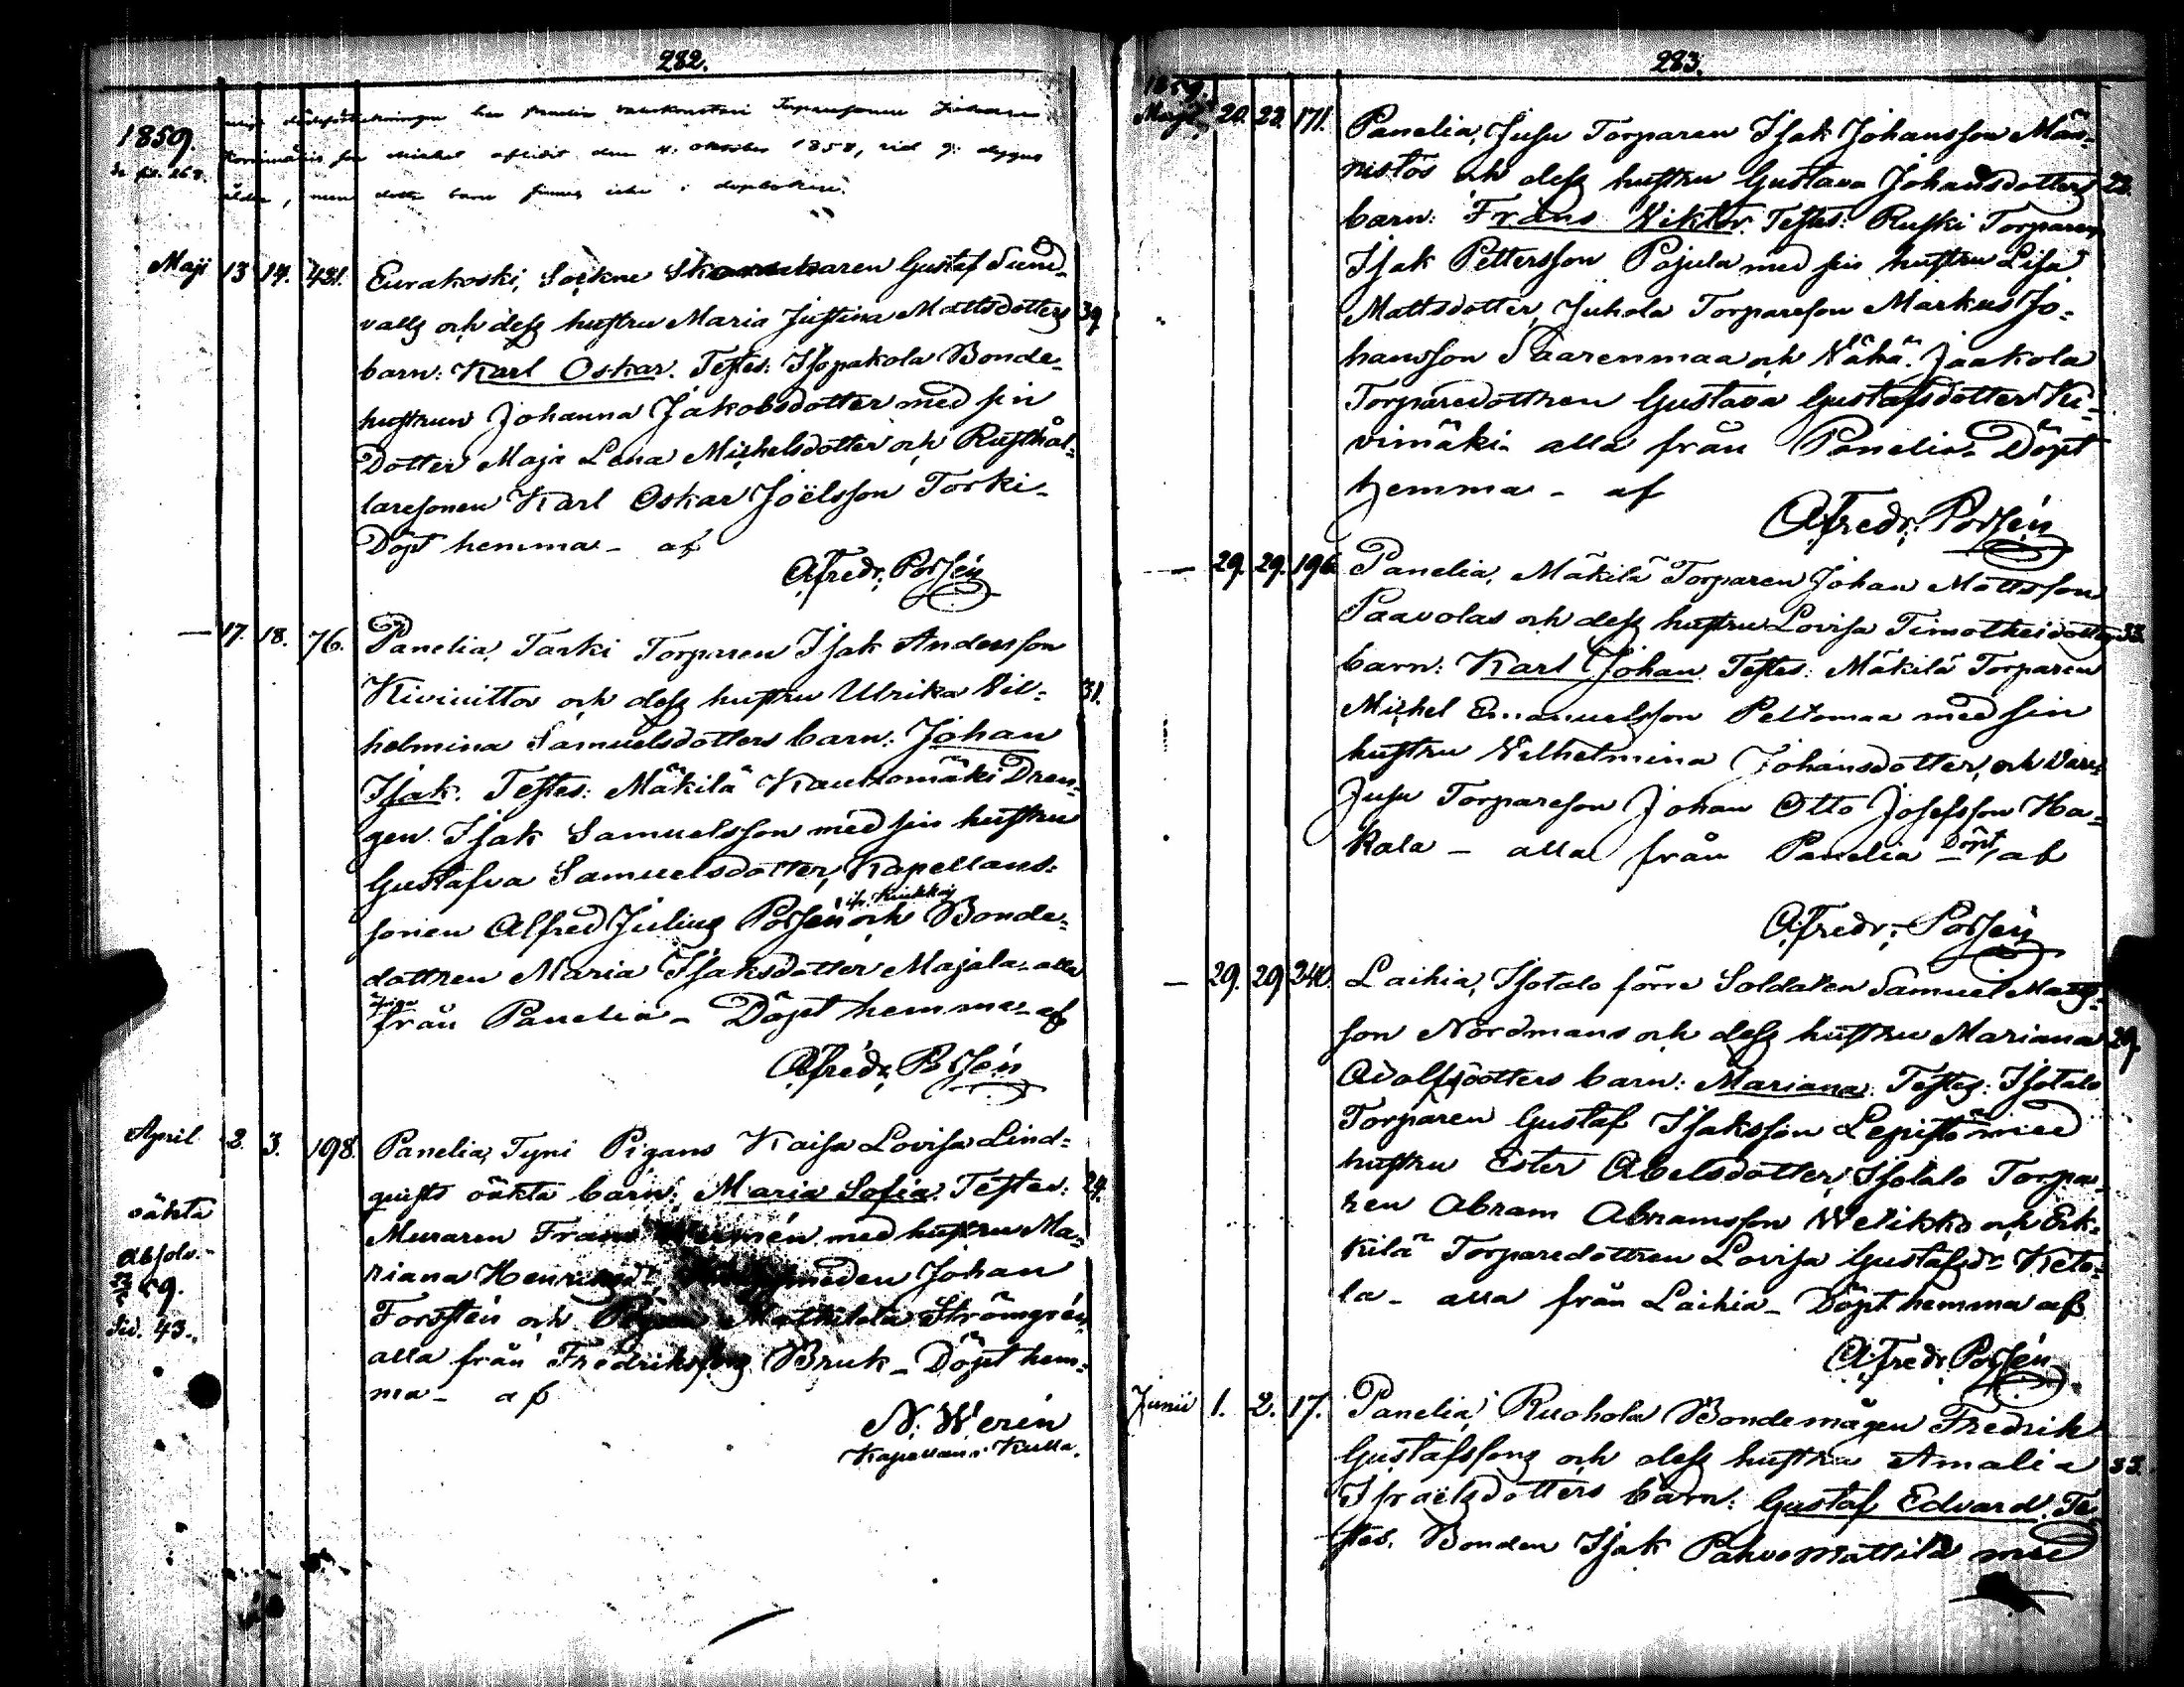 282.
1859.
se pa. 268.
den 4: oktober 1858, vid 9: dygns
ålder, men detta barn finnes icke i dopboken.
Maji 13 14. 421. Eurakoski, Sockne Skomakaren Gustaf Sund-
valls och dess hustru Maria Justina Mattsdotters 39.
barn: Karl Oskar. Testes: Isopakola Bonde-
hustrun Johanna Jakobsdotter med sin
Dotter Maja Lena Michelsdotter och Rusthål-
laresonen Karl Oskar Joëlsson Torki-
Döpt hemma - af
A. Fredr. Porsén
— 17. 18. 76. Panelia, Tarki Torparen Isak Andersson
Kiviniittos och dess hustru Ulrika Vil- 31.
helmina Samuelsdotters barn: Johan
Isak. Testes: Mäkilä Kauttomäki Dren-
gen Isak Samuelsson med sin hustru
Gustafva Samuelsdotter, Kapellans-
sonen Alfred Julius Porsén ifr. Kiukkois och Bonde-
dottren Maria Isaksdotter Majala, alla
öfriga från Panelia - Döpt hemma - af
A. Fredr. Porsén
April 2. 3. 198. Panelia, Tyni Pigans Kaisa Lovisa Lind-
quists oäkta barn: Maria Sofia. Testes: 24.
oäkta
Absolv.
59.
Sid. 43.
Muraren Frans Wermén med hustru Ma-
riana Henriksdr, Johan
Forstén och Pigan Mathilda Strömgrén,
alla från Fredriksfors Bruk - Döpt hem-
ma - af
N. Werén
Kapellan i Kulla.
283.
1859.
Maji 20. 22. 171. Panelia, Jusu Torparen Isak Johansson Män-
nistös och dess hustru Gustava Johansdotters 22.
barn: Frans Viktor. Testes: Ruski Torparen
Isak Pettersson Pajula med sin hustru Lisa
Mattsdotter, Juhola Torpareson Markus Jo-
hansson Saarenmaa och Vähä-Jaakola
Torparedottren Gustava Gustafsdotter Ki-
vimäki - alla från Panelia. Döpt
hemma - af
A. Fredr. Porsén
— 29. 29. 196. Panelia, Mäkilä Torparen Johan Mattsson
Paavolas och dess hustru Lovisa Timotheidotters 33.
barn: Karl Johan. Testes: Mäkilä Torparen
Michel Emanuelsson Peltomaa med sin
hustru Vilhelmina Johansdotter, och
Jusu Torpareson Johan Otto Josefsson Ha-
kala - alla från Panelia - Döpt, af
A. Fredr. Porsén
— 29. 29 240. Laihia, Isotalo förre Soldaten Samuel Matts-
son Nordmans och dess hustru Mariana 29.
Adolfsdotters barn: Mariana. Testes: Isotalo
Torparen Gustaf Isaksson Lepistö med
hustru Ester Abelsdotter, Isotalo Torpa-
ren Abram Abramsson Welikko och Erk-
kilä Torparedottren Lovisa Gustafsdr Keto-
la - alla från Laihia - Döpt hemma af
A. Fredr. Porsén
Junii 1. 2. 17. Panelia, Ruohola Bondemågen Fredrik
Gustafssons och dess hustru Amalia 33.
Israëlsdotters barn: Gustaf Edvard. Te-
stes. Bonden Isak Pahvo Mattila med